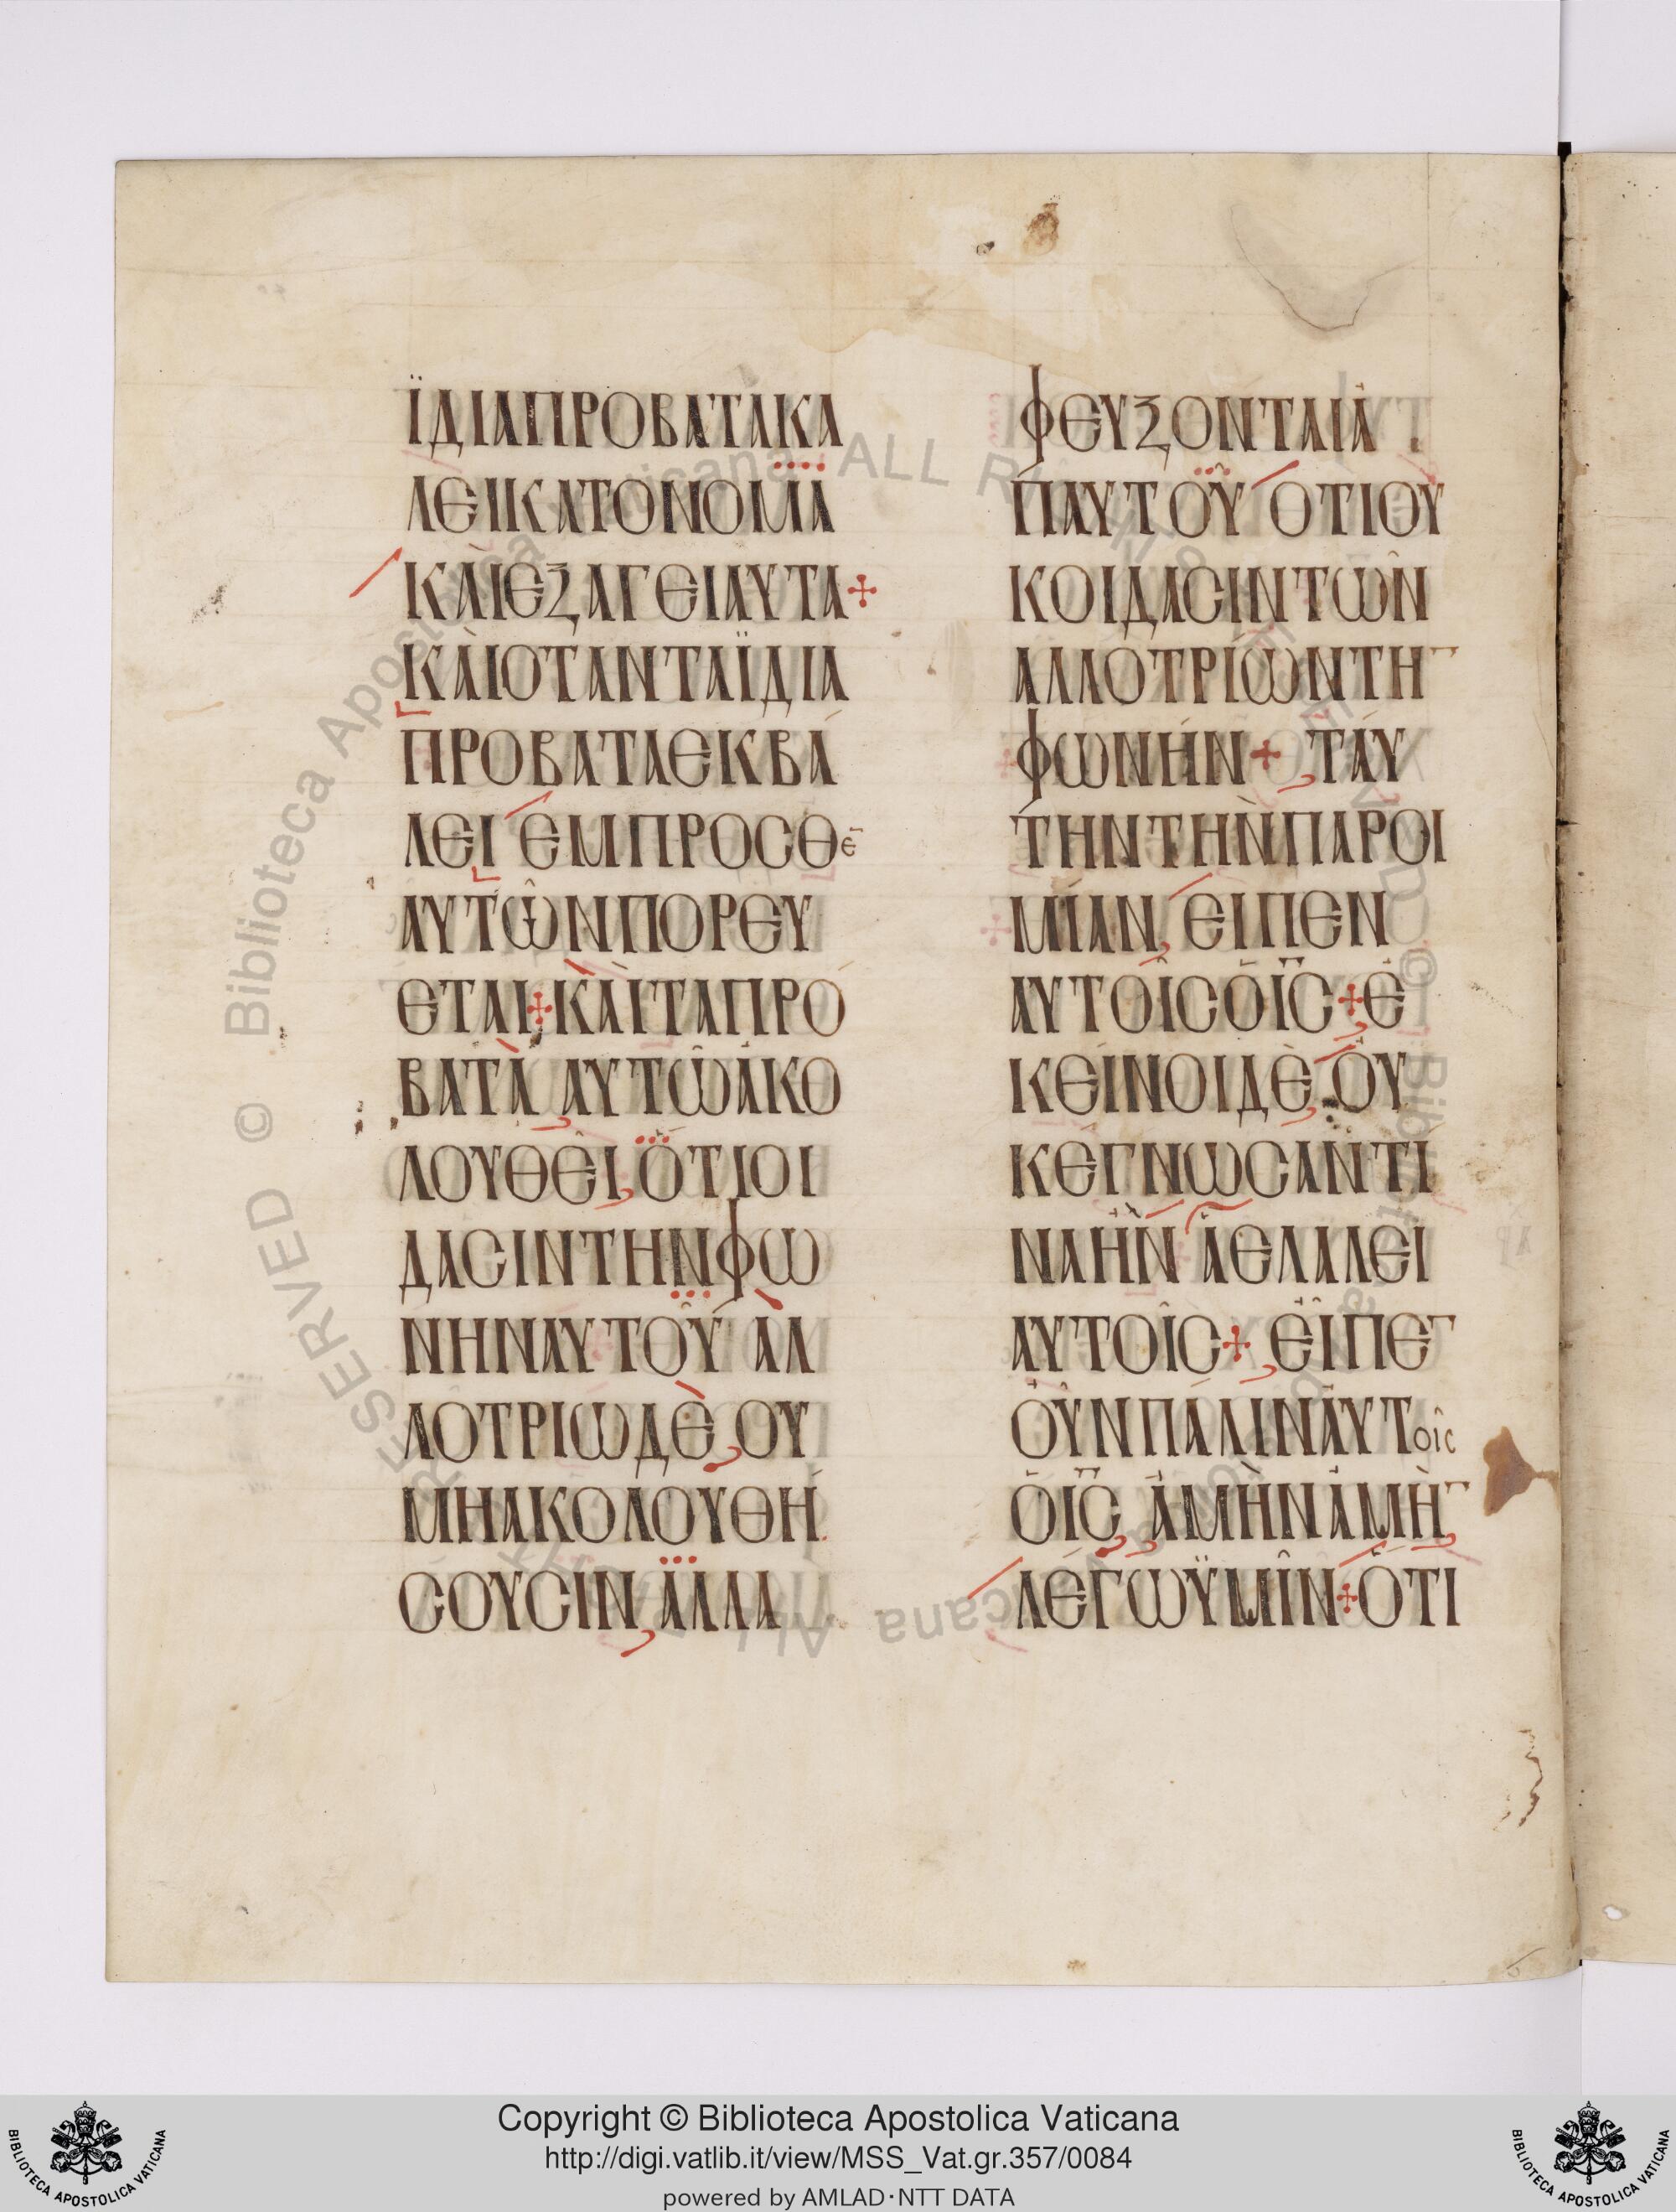 ΪΔΙΑΠΡΟΒΑΤΑΚΑ
ΛΕΙΚΑΤΟΝΟΜΑ
ΚΑΙΕΞΑΓΕΙΑΥΤΑ+
ΚΑῚΟΤΑΝΤΑΪΔΙΑ
ΠΡΟΒΑΤΑΕΚΒΆ
ΛΕΙ ΕΜΠΡΟΣΘΕ̄
ΑΥΤΩ͂ΝΠΟΡΕΥ
ΕΤΑΙ+ΚΑῚΤΑΠΡΌ
ΒΑΤᾺ ΑΥΤΩ͂ἈΚΟ
ΛΟΥΘΕΙ͂, ὍΤΙΟΙ
ΔΑCΙΝΤΗΝΦΩ
ΝΗΝΑΥΤΟΥ͂ ἈΛ
ΛΟΤΡΙΩΔῈ, ΟΥ
ΜΗΑΚΟΛΟΥΘΉ
CΟΥCΙΝ, ἈΛΛΑ
ΦΕΥΞΟΝΤΑΙἈ
ΠΑΥΤΟΥ͂ ὉΤΙΟΥ
ΚΟΙΔΑCΙΝΤΩ͂Ν
ΑΛΛΟΤΡΊΩΝΤΗ¯
ΦΩΝΉΝ+ ΤΑΎ
ΤΗΝΤῊΝΠΑΡΟΙ
ΜΊΑΝ, ΕΙΠΕΝ
ΑΥΤΟΙ͂CὉΙ̅C̅+Ἐ
ΚΕΊΝΟΙΔῈ, ΟΥ
ΚΕΓΝΩCΑΝΤΊ
ΝΑΗ͂Ν ἉΕΛΑΛΕΙ
ΑΥΤΟΙ͂C+ ΕἾΠΕ¯
ΟΥ͂ΝΠΆΛΙΝΑΥΤΟΙ͂C
ὉΙ̅C̅, ἈΜῊΝἈΜῊ¯
ΛΈΓΩΫΜΙ͂Ν+ὍΤΙ
© Biblioteca Apostolica Vaticana ALL RIGHTS RESERVED
Copyright © Biblioteca Apostolica Vaticana
http://digi.vatlib.it/view/MSS_Vat.gr.357/0084
powered by AMLAD·NTT DATA
BIBLIOTECA APOSTOLICA VATICANA
BIBLIOTECA APOSTOLICA VATICANA